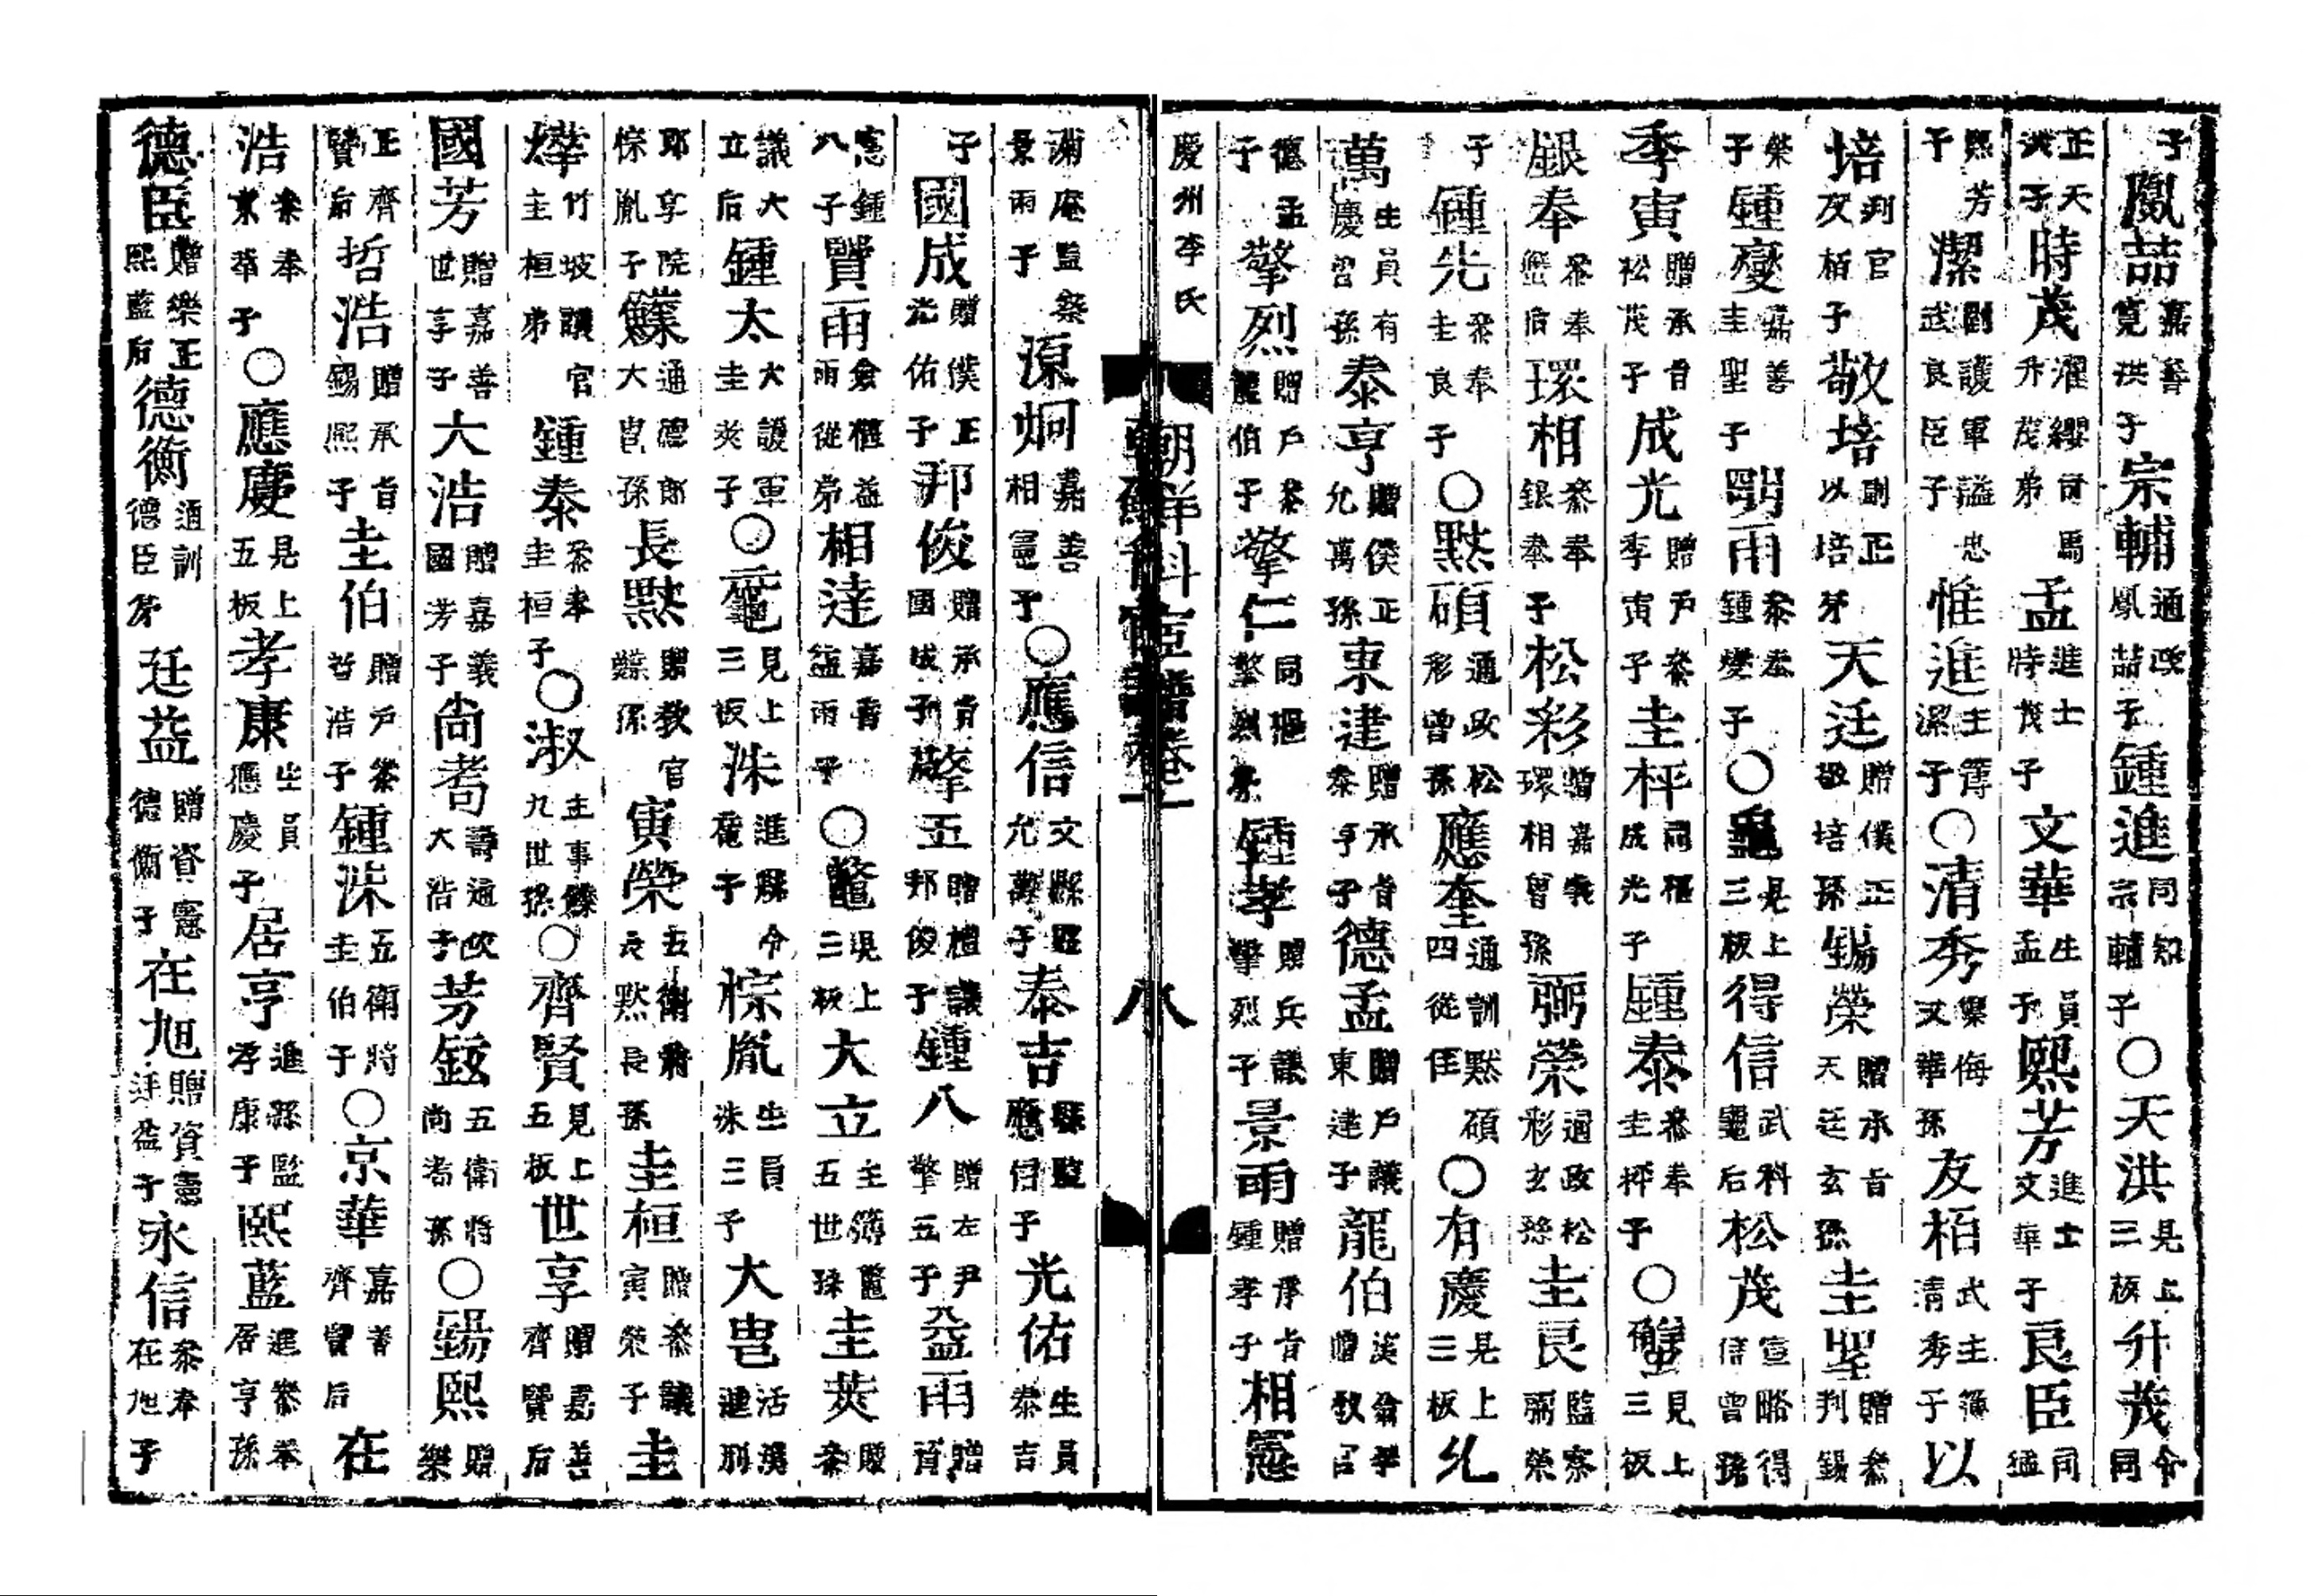 子鳳喆嘉善寛洪子宗輔通政鳳喆子鍾進同知宗輔子〇天洪見上三板升茂同令
正天洪子時茂濯纓升茂弟司馬孟進士時茂子文華生員孟子熙芳進士文華子良臣同孟
熙芳子潔副護軍武良臣子謚忠惟進主簿潔子〇清秀樂侮文華孫友栢武主簿清秀子以
培判官友栢子敬培副正以培弟天廷贈僕正敬培孫錫榮贈承旨天廷玄孫圭聖贈參判錫
榮子鍾燮嘉善圭聖子弼雨參奉鍾燮子〇龜見上三板得信武科龜后松茂宣略得信曾孫
季寅贈承旨松茂子成光贈戶參季寅子圭枰同樞成光子鍾泰參奉圭枰子〇蠻見上三板
銀奉參奉蠻后環相參奉銀奉子松彩贈嘉義環相曾孫弼榮通政松彩玄孫圭良監察弼榮
子鍾先參奉圭良子〇默碩通政松彩曾孫應奎通訓默碩四從侄〇有慶見上三板允
萬生員有慶曾孫泰亨贈僕正允萬孫東建贈承旨泰亨子德孟贈戶議東建子龍伯漢翁贈教官
德孟子擎烈贈戶參龍伯子擎仁同樞擎烈弟鍾孝贈兵議擎烈子景雨贈承旨鍾孝子相寭
慶州李氏
朝鮮科宦譜卷一 八
蘭庵監察景雨子源炯嘉善相憲子〇應信文縣監允萬子泰吉縣監應信子光佑生員泰吉
子國成贈僕正光佑子邦俊贈承旨國成子擎五贈禮議邦俊子鍾八贈左尹擎五子益雨贈資
憲鍾八子賢雨僉樞益雨從弟相達嘉善益雨子〇鼈見上三板大立主簿鼈五世孫圭莢贈參
議大立后鍾太大護軍圭莢子〇黿見上三板洙進縣令黿子悰胤生員洙三子大岜活溪進別
郎享院悰胤子鰈通德郎大岜孫長默贈教官鰈孫寅榮五衛將長默孫圭桓贈參議寅榮子圭
燁竹坡議官圭桓弟鍾泰參奉圭桓子〇淑主事鰈九世孫〇齊賢見上五板世享贈嘉善齊賢后
國芳贈嘉善世享子大浩贈嘉義國芳子尙耈壽通政大浩子芳鉉五衛將尙耈孫〇錫熙贈樂
正齊賢后哲浩贈承旨錫熙子圭伯贈戶參哲浩子鍾洙五衛將圭伯子〇京華嘉善齊賢后在
浩參奉京華子〇應慶見上五板孝康生員應慶子居亨進縣監孝康子熙藍進參奉居亨孫
德臣贈樂正熙藍后德衡通訓德臣弟廷益贈資憲德衡子在旭贈資憲廷益子永信參奉在旭子